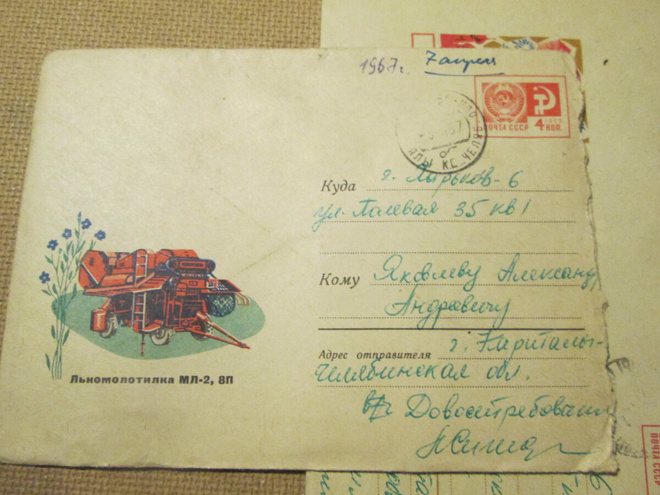 1967г.
7 апреля
ПОЧТА СССР 4 КОП.
Куда г. Харьков-6
ул. Полевая 35 кв 1
Кому Яковлеву Александру
Андреевичу
Адрес отправителя г. Карталы-
Челябинская обл.
Довостребования
Льномолотилка МЛ-2, 8П